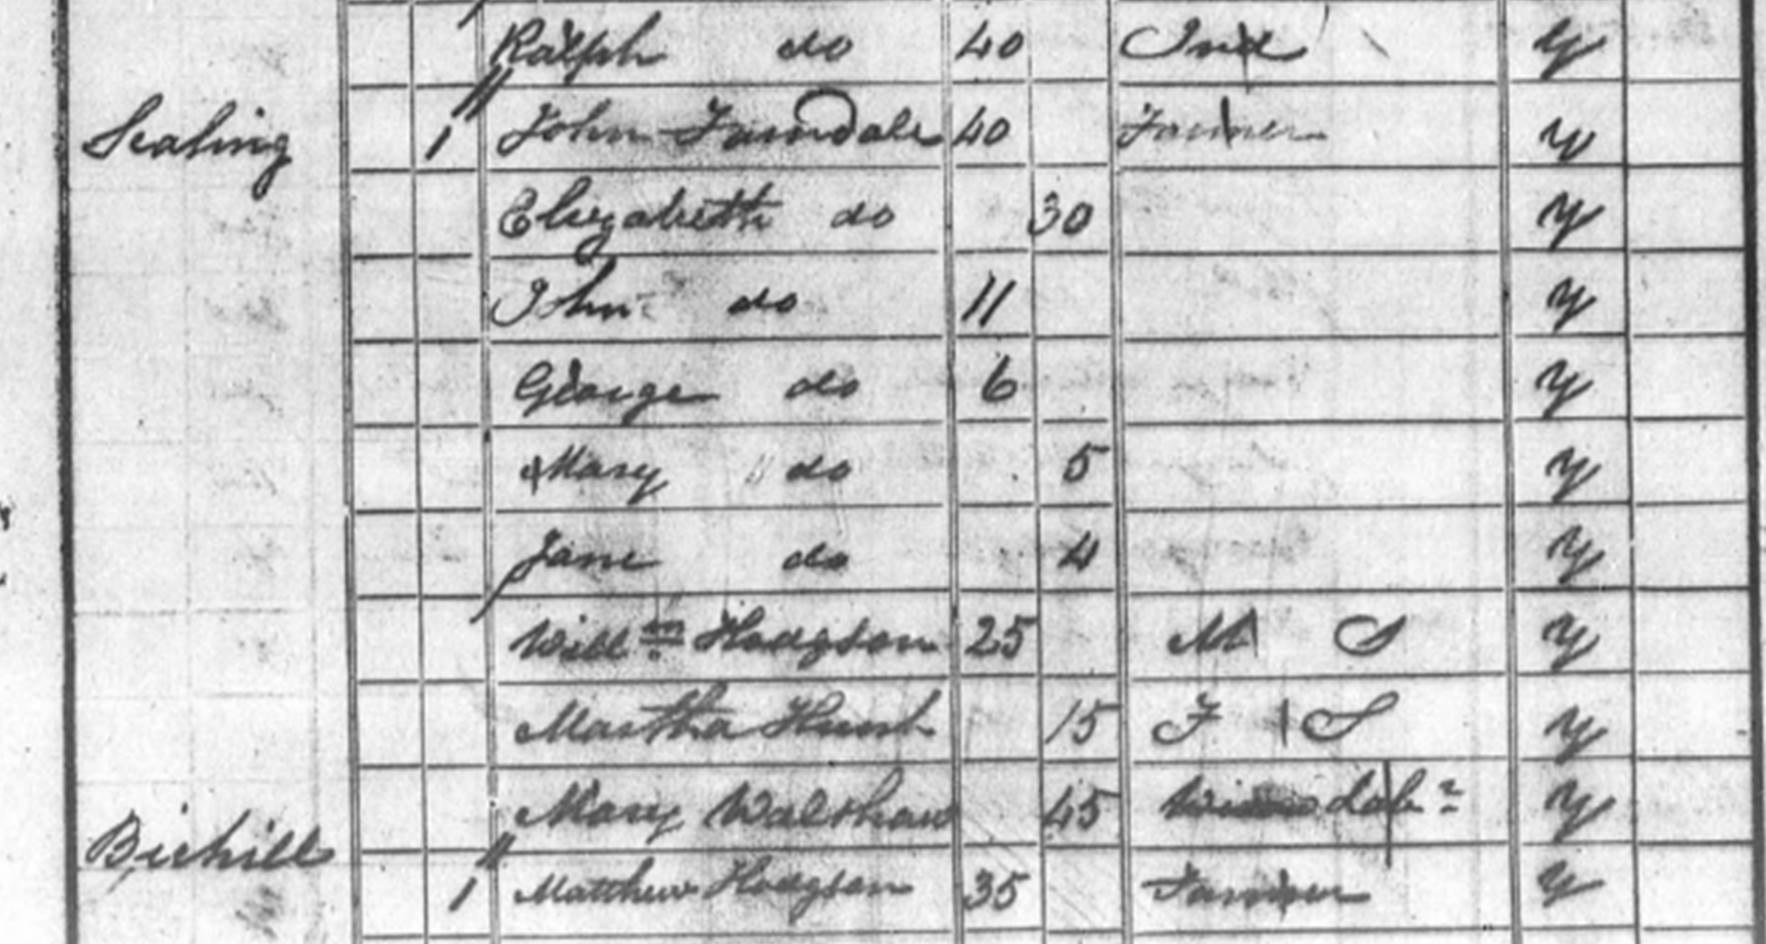 Ralph do 40 Ind y
Scaling 1 John Farndale 40 Farmer y
Elizabeth do 30 y
John do 11 y
George do 6 y
Mary do 5 y
Jane do 4 y
Willm Hodgson 25 M S y
Martha Hunt 15 F S y
Mary Walshaw 45 y
Birhill 1 Matthew Hodgson 35 Farmer y